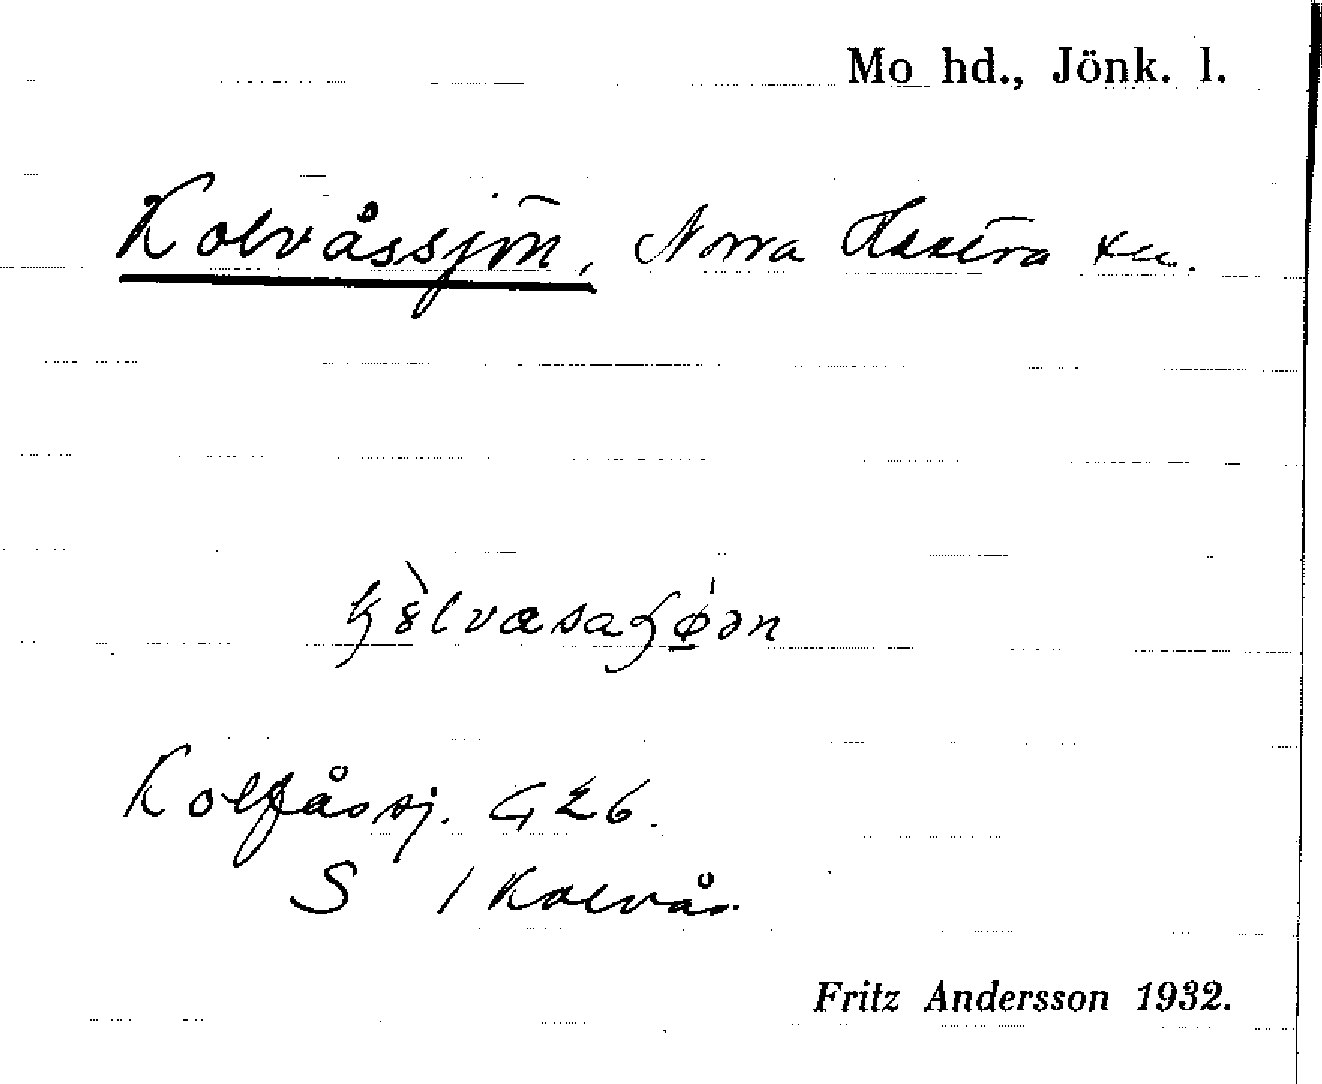 Mo hd., Jönk. l.
Kolvåssjön, Norra Hestra sn.
Kolfåssj. G 26.
S / Kolvås.
Fritz Andersson 1932.